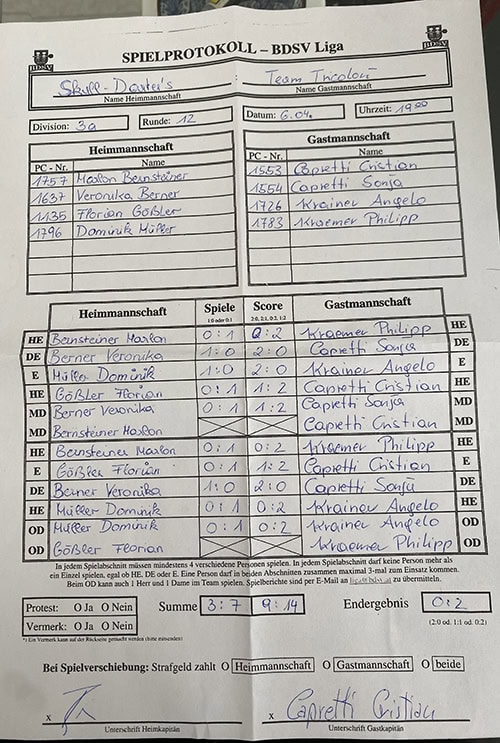 SPIELPROTOKOLL – BDSV Liga
BDSV BDSV
Skull-Darter's : Team Tricolori
Name Heimmannschaft Name Gastmannschaft
Division: 3a Runde: 12 Datum: 6.04. Uhrzeit: 19 00
Heimmannschaft Gastmannschaft
PC - Nr. Name PC - Nr. Name
1757 Marlon Beinsteiner 1553 Capretti Cristian
1637 Veronika Berner 1554 Capretti Sonja
1135 Florian Gößler 1726 Krainer Angelo
1796 Dominik Müller 1783 Kraemer Philipp
Heimmannschaft Spiele Score Gastmannschaft
1:0 oder 0:1 2:0, 2:1, 0:2, 1:2
HE Beinsteiner Marlon 0:1 0:2 Kraemer Philipp HE
DE Berner Veronika 1:0 2:0 Capretti Sonja DE
E Müller Dominik 1:0 2:0 Krainer Angelo E
HE Gößler Florian 0:1 1:2 Capretti Cristian HE
MD Berner Veronika 0:1 1:2 Capretti Sonja MD
MD Beinsteiner Marlon Capretti Cristian MD
HE Beinsteiner Marlon 0:1 0:2 Kraemer Philipp HE
E Gößler Florian 0:1 1:2 Capretti Cristian E
DE Berner Veronika 1:0 2:0 Capretti Sonja DE
HE Müller Dominik 0:1 0:2 Krainer Angelo HE
OD Müller Dominik 0:1 0:2 Krainer Angelo OD
OD Gößler Florian Kraemer Philipp OD
In jedem Spielabschnitt müssen mindestens 4 verschiedene Personen spielen. In jedem Spielabschnitt darf keine Person mehr als
ein Einzel spielen, egal ob HE, DE oder E. Eine Person darf in beiden Abschnitten zusammen maximal 3-mal zum Einsatz kommen.
Beim OD kann auch 1 Herr und 1 Dame im Team spielen. Spielberichte sind per E-Mail an zu übermitteln.
Protest: O Ja O Nein Summe 3:7 9:14 Endergebnis 0:2
Vermerk: O Ja O Nein (2:0 od. 1:1 od. 0:2)
*) Ein Vermerk kann auf der Rückseite gemacht werden (bitte einsenden)
Bei Spielverschiebung: Strafgeld zahlt O Heimmannschaft O Gastmannschaft O beide
x x Capretti Cristian
Unterschrift Heimkapitän Unterschrift Gastkapitän